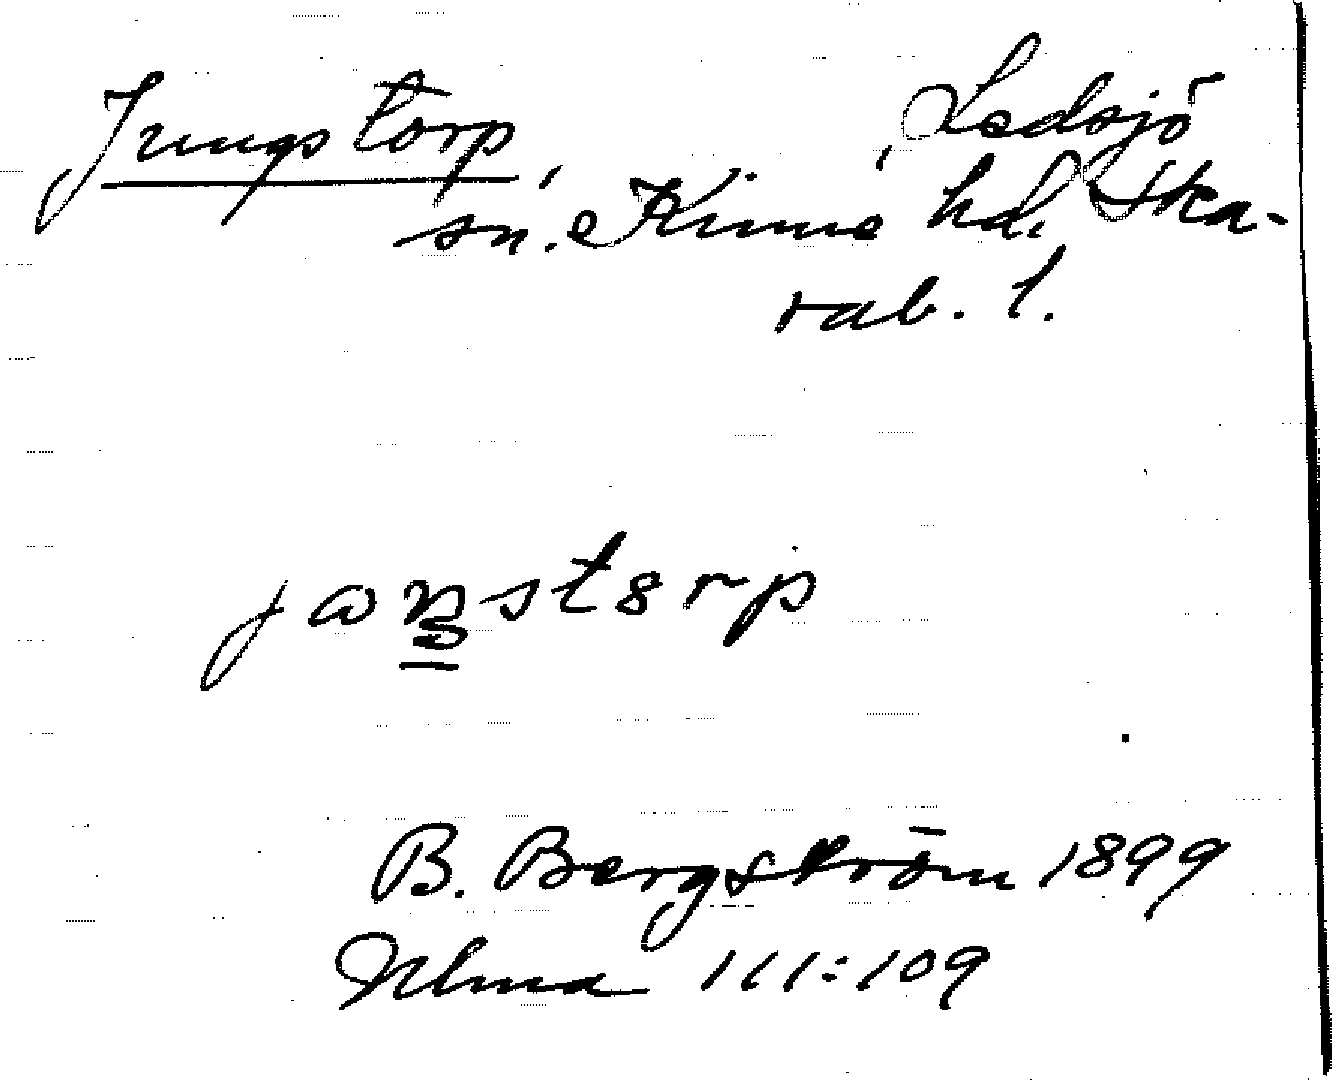 Jungstorp, Ledsjö
sn. Kinne hd, Ska-
rab. l.
jaŋstɵrp
B. Bergström 1899
Ulma 111:109